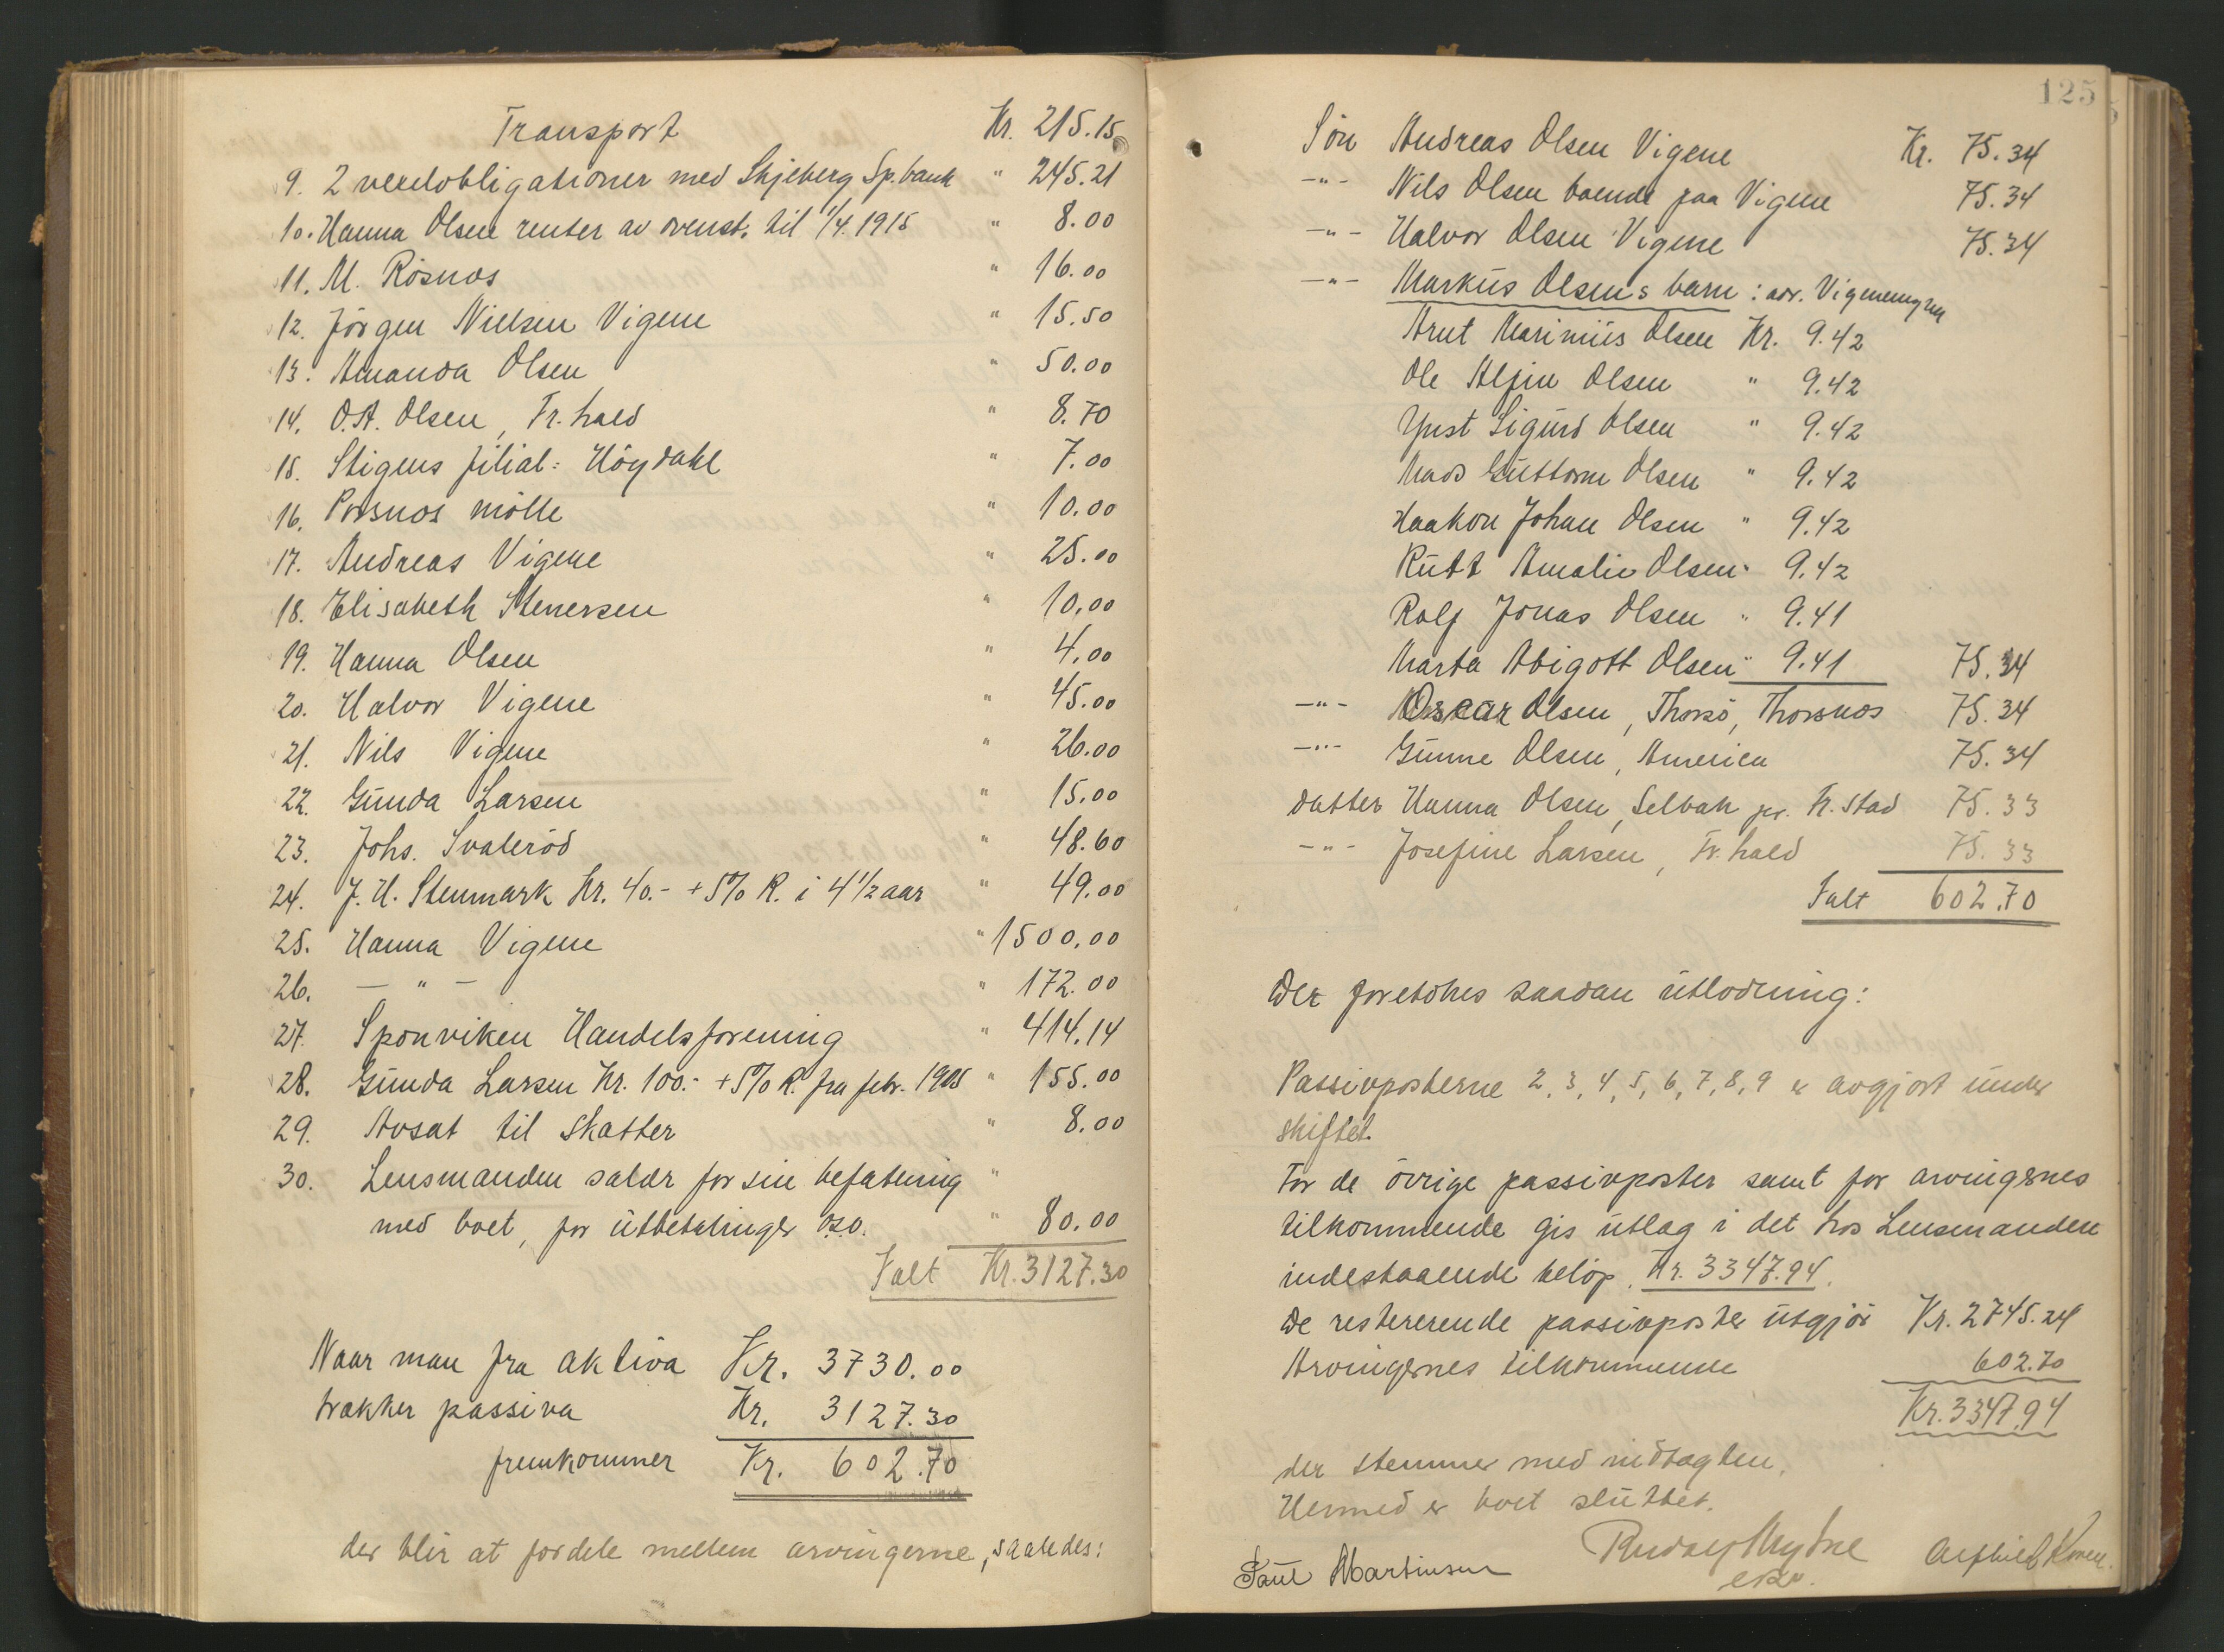 Transport Kr. 215.15
9. 2 vexelobligationer med Skjeberg Sp.bank " 245.21
10. Hanna Olsen renter av ovenst. til 1/4. 1915 " 8.00
11. M. Rösnæs " 16.00
12. Jörgen Nielsen Vigene " 15.50
13. Amanda Olsen " 50.00
14. O.A. Olsen, Fr.hald " 8.70
15. Stigens filial: Högdahl " 7.00
16. Porsnæs mölle " 10.00
17. Andreas Vigene " 25.00
18. Elisabeth Stenersen " 10.00
19. Hanna Olsen " 4.00
20. Halvor Vigene " 45.00
21. Nils Vigene " 26.00
22. Gunda Larsen " 15.00
23. Johs. Svaleröd " 48.60
24. J. H. Stenmark Kr. 40.- + 5% R. i 4 1/2 aar " 49.00
25. Hanna Vigene " 1500.00
26. — " — " 172.00
27. Sponviken Handelsforening " 414.14
28. Gunda Larsen Kr. 100.- + 5% R. fra febr. 1905 " 155.00
29. Avsat til skatter " 8.00
30. Lensmanden salær for sin befatning "
med boet, for utbetalinger o.s.v. " 80.00
Ialt Kr. 3127.30
Naar man fra aktiva Kr. 3730.00
trækker passiva Kr. 3127.30
fremkommer Kr. 602.70
der blir at fordele mellem arvingerne, saaledes:
125
Sön Andreas Olsen Vigene Kr. 75.34
-"- Nils Olsen boende paa Vigene 75.34
-"- Halvor Olsen Vigene 75.34
-"- Markus Olsens barn: adr.
Arnt Marinius Olsen Kr. 9.42
Ole Alfin Olsen " 9.42
Sigurd Olsen " 9.42
Mads Guttorm Olsen " 9.42
Haakon Johan Olsen " 9.42
Rutt Amalie Olsen " 9.42
Rolf Jonas Olsen " 9.41
Marta Abigott Olsen " 9.41 75.34
-"- Oscar Olsen, Thorsö, Thorsnæs 75.34
-"- Gunne Olsen, America 75.34
datter Hanna Olsen, Selbak pr. Fr.stad 75.33
-"- Josefine Larsen, Fr.hald 75.33
Ialt 602.70
Der foretokes saadan utlodning:
Passivposterne 2, 3, 4, 5, 6, 7, 8, 9 er avgjort under
skiftet.
For de övrige passivposter samt for arvingernes
tilkommende gis utlag i det hos Lensmanden
indestaaende belöp, Kr. 3347.94.
De resterende passivposter utgjör Kr. 2745.24
Arvingernes tilkommende 602.70
Kr. 3347.94
der stemmer med indtægten.
Hermed er boet sluttet.
Paul Martinsen